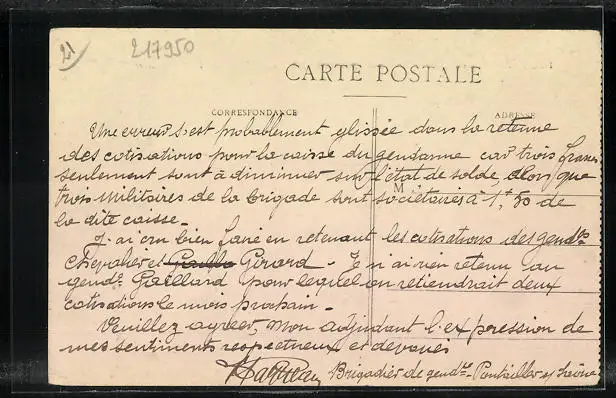 21
217950
CARTE POSTALE
CORRESPONDANCE
ADRESSE
M
Une erreur s'est probablement glissée dans la retenue
des cotisations pour la caisse du gendarme car trois francs
seulement sont à diminuer sur l'état de solde, alors que
trois militaires de la brigade sont sociétaires à 1f,50 de
la dite caisse.
J'ai cru bien faire en retenant les cotisations des gend.
Chevalier et Girard. Je n'ai rien retenu au
gend. Gaillard pour lequel on retiendrait deux
cotisations le mois prochain.
Veuillez agréer, mon adjudant l'expression de
mes sentiments respectueux et dévoués
Brigadier de gend.